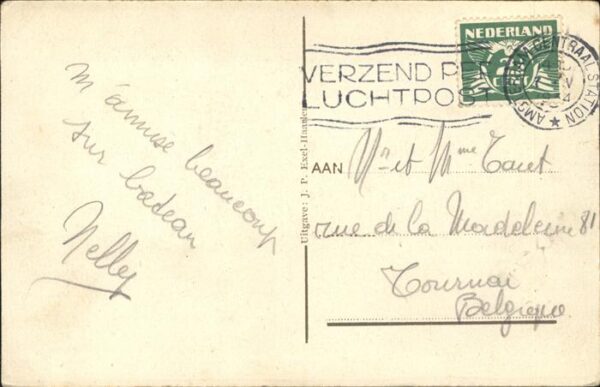 m'amuse beaucoup
sur bateau
Nelly
Uitgave: J. P. Exel-Haarlem
NEDERLAND
2
CENT
VERZEND P
LUCHTPOST
CENTRAAL STATION
AAN Mr et Mme
rue de la Madeleine 81
Tournai
Belgique